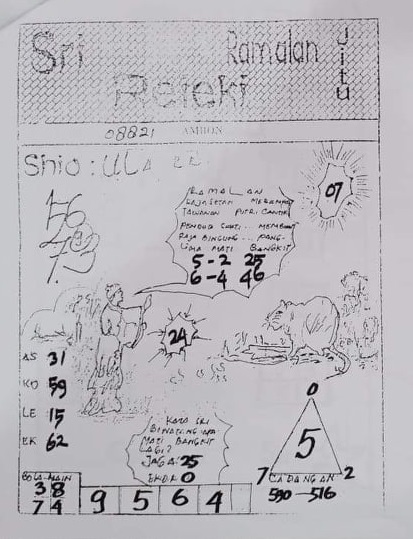 Sri
Ramalan
Jitu
Rejeki
08821 AMBON
Shio: ULA
07
56
7.3
RAMALAN
RAJA SETAN MERAMPAS
TAWANAN PUTRI CANTIK
MEMBUAT
RAJA BINGUNG... PANG-
LIMA MATI BANGKIT
5-2 25
6-4 46
24
AS 31
KO 59
LE 15
EK 62
KATA SRI
BINATANG APA
MATI BANGKIT
LAGI?
JAGA: 25
EKOR 0
0
5
7 CADANGAN 2
590-516
BOLA-MAIN
38
74
9 5 6 4